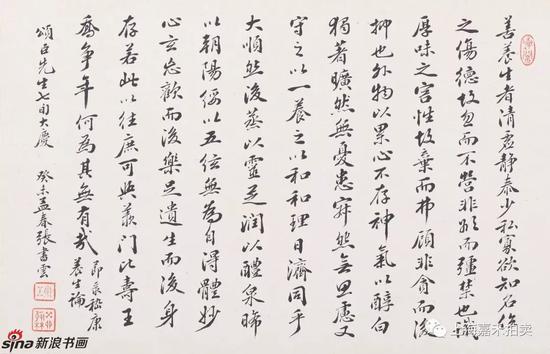 善養生者清虛靜泰少私寡欲知名位
之傷德故忽而不營非欲而彊禁也識
厚味之害性故棄而弗顧非貪而後
抑也外物以累心不存神氣以醇白
獨著曠然無憂患寂然无思慮又
守之以一養之以和和理日濟同乎
大順然後蒸以靈芝潤以醴泉晞
以朝陽綏以五弦無為自得體妙
心玄忘歡而後樂足遺生而後身
存若此以往庶可與羨門比壽王
喬爭年何為其無有哉
節錄嵇康
養生論
頌臣先生七旬大慶 癸未孟春張書雲
sina新浪书画
上海嘉禾拍卖